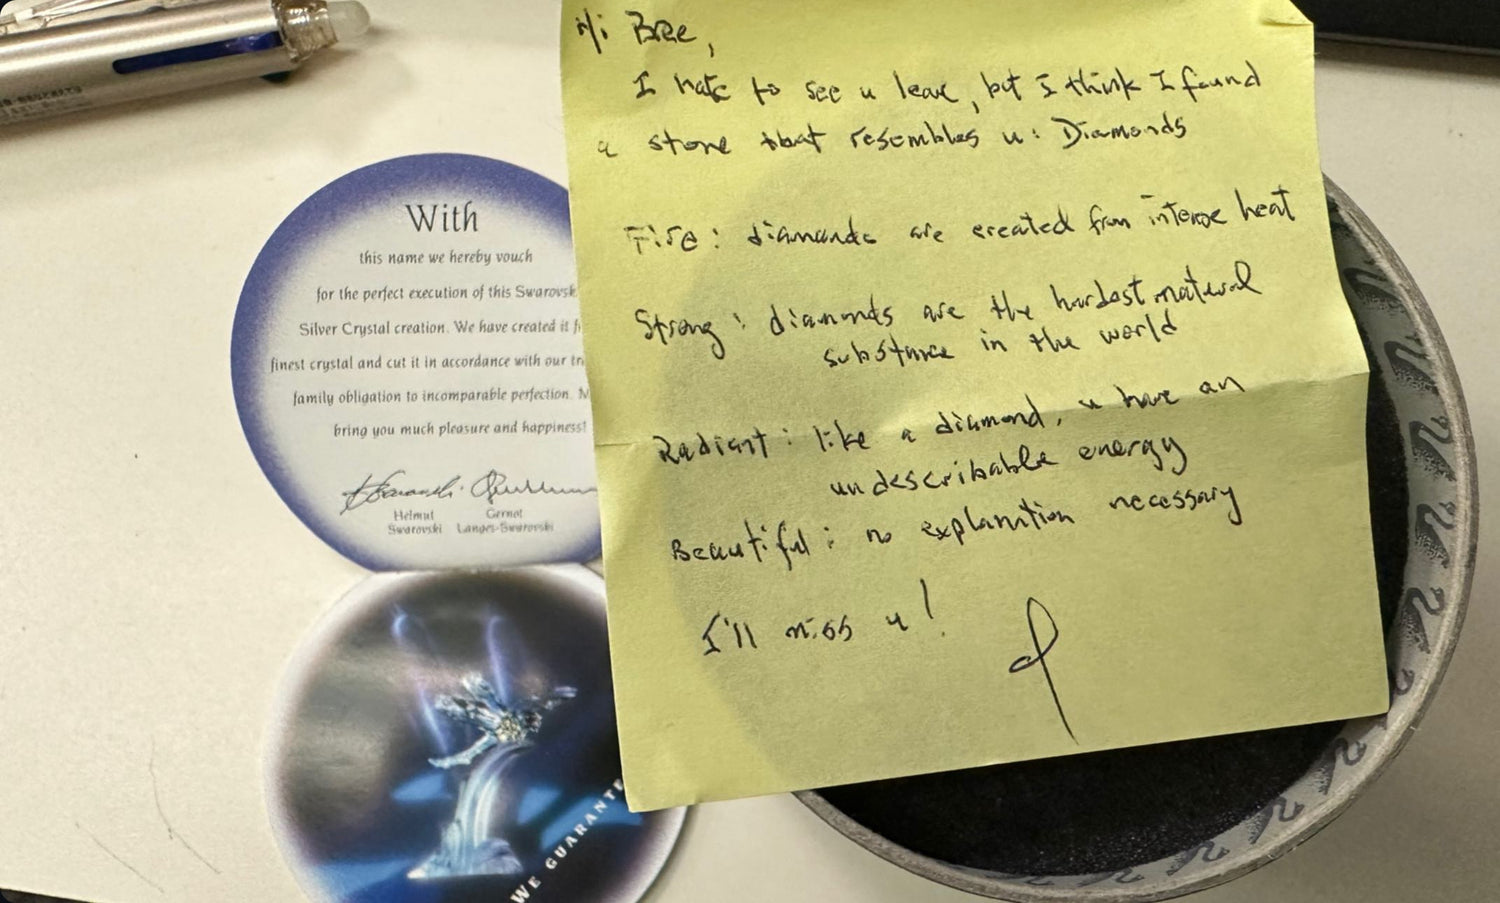 Hi Bree,
I hate to see u leave, but I think I found
a stone that resembles u: Diamonds
Fire: diamonds are created from intense heat
Strong: diamonds are the hardest natural
substance in the world
Radiant: like a diamond, u have an
undescribable energy
Beautiful: no explanation necessary
I'll miss u!
With
this name we hereby vouch
for the perfect execution of this Swarovsk
Silver Crystal creation. We have created it f
finest crystal and cut it in accordance with our
family obligation to incomparable perfection. M
bring you much pleasure and happiness!
Helmut Gernot
Swarovski Langes-Swarovski
WE GUARANTE